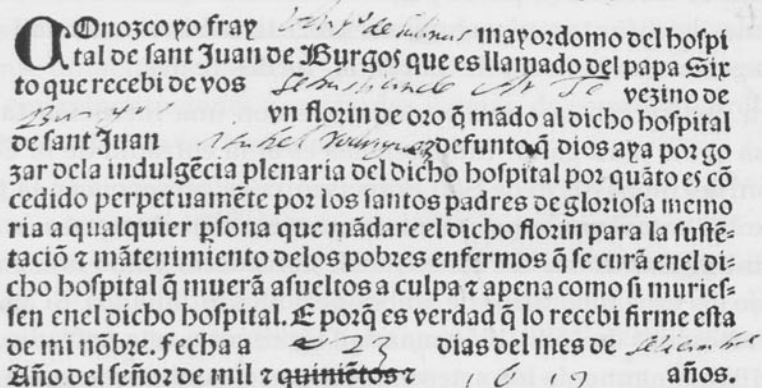 COnozco yo fray mayordomo del hospi
tal de sant Juan de Burgos que es llamado del papa Six
to que recebi de vos vezino de
vn florin de oro q̃ mãdo al dicho hospital
de sant Juan defunto q̃ dios aya por go
zar dela indulgẽcia plenaria del dicho hospital por quãto es cõ
cedido perpetuamẽte por los santos padres de gloriosa memo
ria a qualquier ꝑsona que mãdare el dicho florin para la sustẽ-
taciõ ⁊ mãtenimiento delos pobres enfermos q̃ se curã enel di-
cho hospital q̃ muerã asueltos a culpa ⁊ apena como si muries-
sen enel dicho hospital. E porq̃ es verdad q̃ lo recebi firme esta
de mi nõbre. Fecha a 23 dias del mes de
Año del señor de mil ⁊ quiniẽtos ⁊ años.